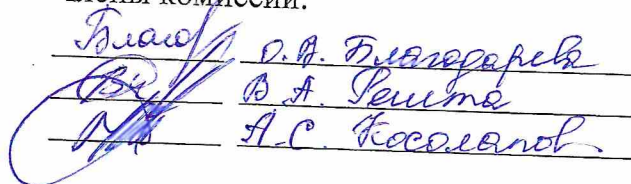 члены комиссии:
О.А. Благодарева
В.А. Решта
А.С. Косолапов